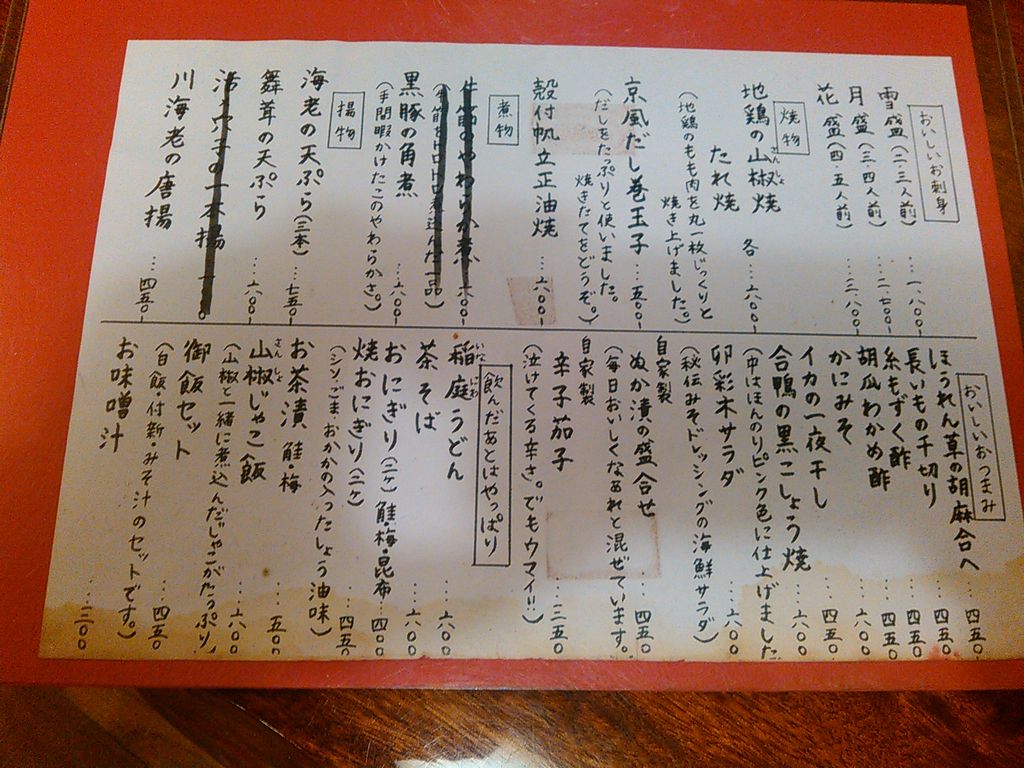 おいしいお刺身
雪盛(二・三人前)…一、八〇〇-
月盛(三・四人前)…二、七〇〇-
花盛(四・五人前)…三、八〇〇-
焼物
地鶏の山椒焼
さんしょ
たれ焼 各…六〇〇-
(地鶏のもも肉を丸一枚じっくりと
焼き上げました。)
京風だし巻玉子…五〇〇-
(だしをたっぷりと使いました。
焼きたてをどうぞ。)
殻付帆立正油焼…六〇〇-
煮物
牛筋のやわらか煮
黒豚の角煮…六〇〇-
(手間暇かけたこのやわらかさ。)
揚物
海老の天ぷら(三本)…七五〇-
舞茸の天ぷら…六〇〇-
川海老の唐揚…四五〇-
おいしいおつまみ
ほうれん草の胡麻合へ…四五〇
長いもの千切り…四五〇
糸もずく酢…四五〇
胡瓜わかめ酢…四五〇
かにみそ…四五〇
イカの一夜干し…四五〇
合鴨の黒こしょう焼…六〇〇
(中はほんのりピンク色に仕上げました
卵彩木サラダ…六〇〇
(秘伝みそドレッシングの海鮮サラダ)
自家製
ぬか漬の盛合せ…四五〇
(毎日おいしくなあれと混ぜています。)
自家製
辛子茄子…三五〇
(泣けてくる辛さ。でもウマイ!!)
飲んだあとはやっぱり
稲庭うどん…六〇〇
いなにわ
茶そば…六〇〇
おにぎり(二ケ)鮭・梅・昆布…四〇〇
焼おにぎり(二ケ)…四五〇
(シソ、ごま、おかかの入ったしょう油味)
お茶漬 鮭・梅…五〇〇
山椒じゃこ飯…六〇〇
さんしょ
(山椒と一緒に煮込んだじゃこがたっぷり)
御飯セット…四五〇
(白飯・付新・みそ汁のセットです。)
お味噌汁…二〇〇